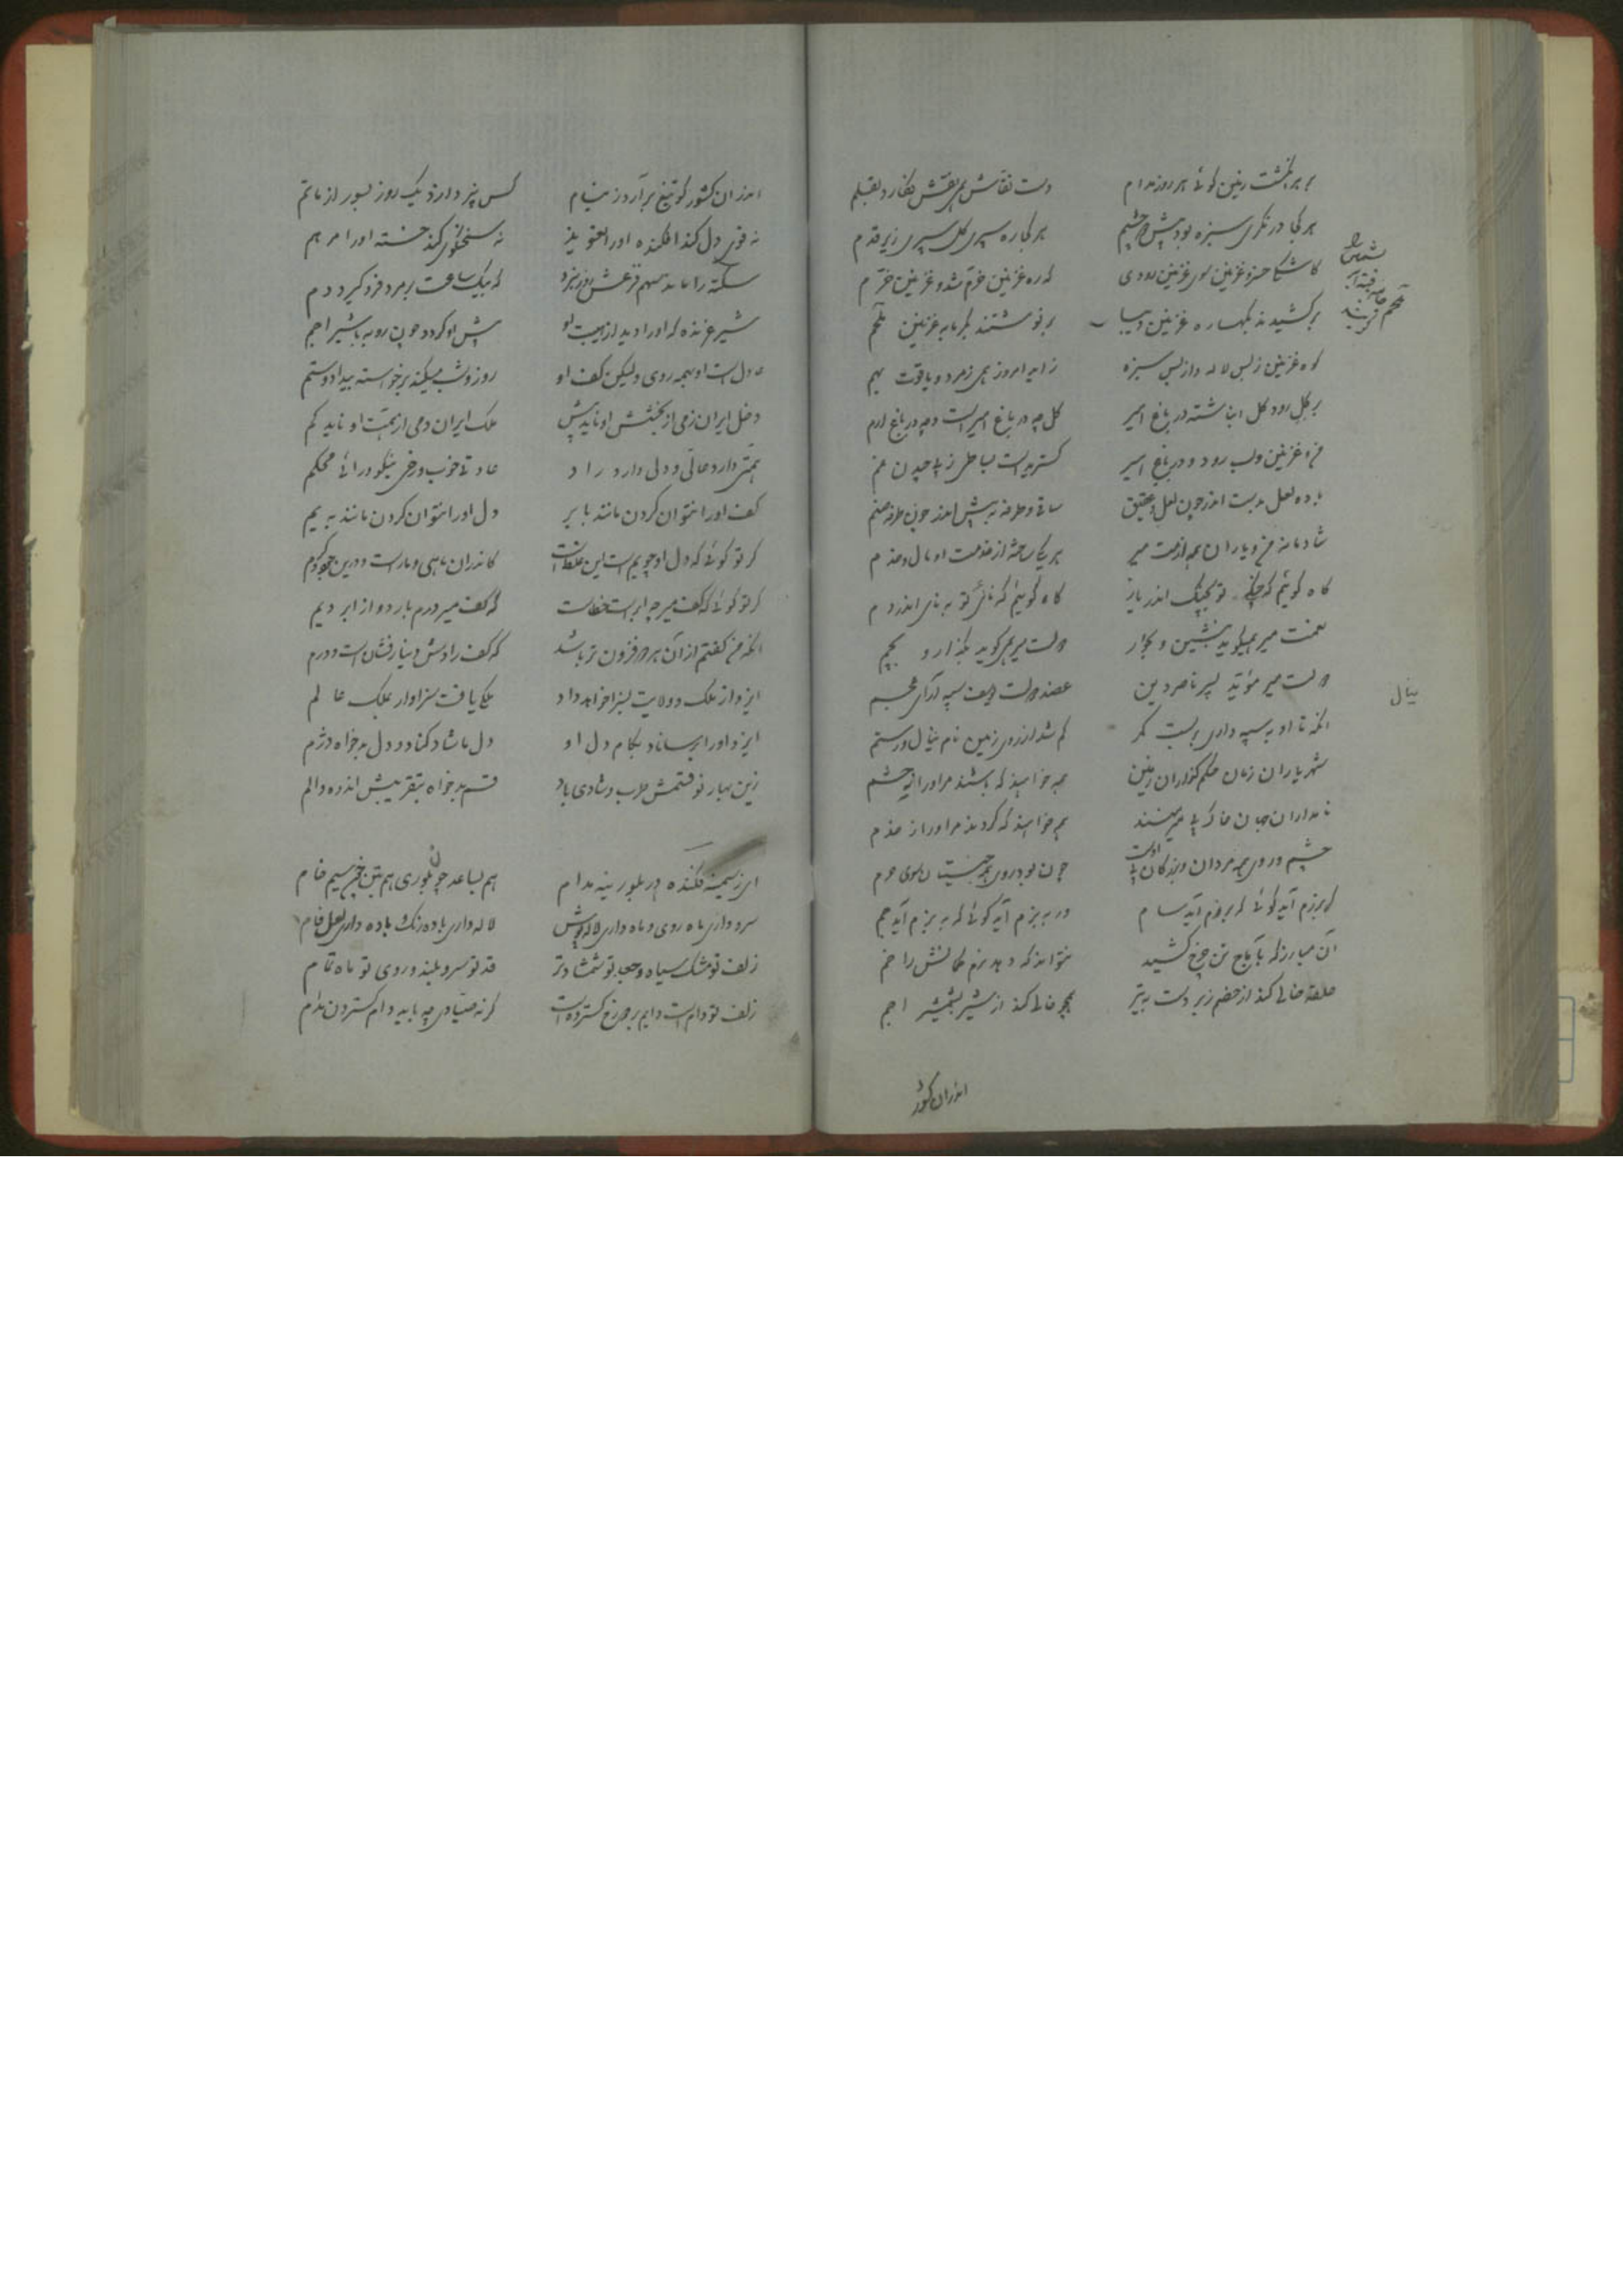 بر بر انگشت زمین گوئی هر روز مدام دست نقاش همی نقش نگارد بقلم
هر کجا درنگری سبزه بود پیش دو چشم هر کجا ره سپری گل سپری زیر قدم
کاشکی خسرو غزنین سوی غزنین رودی که ره غزنین خرم شد و غزنین خرم
برکشیدند بکهساره غزنین دیبا برنوشتند بگرمابه غزنین ملحم
که غزنین ز بس لاله و از بس سبزه زاید امروز همی زمرد و یاقوت بهم
بر گل رود گل انباشته در باغ امیر گل چه در باغ امیر است و چه در باغ ارم
من و غزنین و لب رود و در باغ امیر گستریده است بساطی ز پی چیدن غم
باده لعل بدست اندر چون لعل و عقیق ساقی و طرفه به پیش اندر چون طرفه صنم
شادمانه من و یاران همه از خدمت میر هر یکی ساخته از خدمت او مال و خدم
گاه گوئیم که چنگی تو بچنگ اندر یاز گاه گوئیم که نائی تو به نای اندر دم
نعمت میر همیگوید بنشین و بخور دولت میر همی گوید بگذار و بچم
دولت میر مؤید پسر ناصر دین عضد دولت یوسف سپه آرای عجم
آنکه تا او به سپه داری بربست کمر گم شد از روی زمین نام ینال و رستم
شهریاران زمان حکم گذاران زمین همه خواهند که باشند مر او را ز حشم
نامداران جهان خاک پی میر منند همه خواهند که گردند مر او را ز خدم
چشم و روی همه مردان و بزرگان پی اوست چون بود روی همه حبستان سوی حرم
گر برزم آید گوئی که برزم آمد سام ور به بزم آید گوئی که به بزم آمد جم
آن مبارز که بآماج تن چرخ کشید نتواند که دهد نرم کمانش را خم
حلقه خالی کند از خصم زبر دست به تیر همچو خالی کند از شیر بشمشیر اجم
ینال
اندران کشور
اندران کشور کو تیغ برآرد ز نیام کس نپردازد یک روز بسور از ماتم
نه قوی دل کند افکنده او را تعویذ نه سخنگوی کند خسته او را مرهم
سکته را ماند سهم فزعش روز نبرد که بیک ساعت بر مرد فرو گیرد دم
شیر غرنده که او را دید از هیبت او پیش او گردد چون روبه با شیر اجم
عادل است او بهمه روی ولیکن کف او روز و شب میکند بر خواسته بیداد و ستم
دخل ایران زمی از بخشش او ناید بیش ملک ایران زمی از همت او ناید کم
همتی دارد عالی و دلی دارد راد عادتی خوب و خوی نیکو و رائی محکم
کف او را نتوان کردن مانند بابر دل او را نتوان کردن مانند به یم
گر تو گوئی که دل او چو یم است این غلط است کاندران ماهی و مار است و درین جود و کرم
گر تو گوئی که کف میر چو ابر است خطاست که کف میر درم بارد و از ابر دیم
آنکه من گفتم از آن هر دو فزون تر باشد که کف رادش دینار فشان است و درم
ایزد از ملک و ولایت بسزا خواهد داد ملکی یافت سزاوار بملک عالم
ایزد او را برساناد بکام دل او دل ما شاد کناد و دل بدخواه دژم
زین بهار نو قسمتش طرب و شادی باد قسم بدخواه بتقریبش اندوه و الم
ای ز سیمینه فکنده در بلورینه مدام هم بساعد چون بلوری هم بتن چون سیم خام
سرو داری ماه روی و ماه داری لاله پوش لاله داری باده رنگ و باده داری لعل فام
زلف تو مشک سیاه و جعد تو شمشاد تر قد تو سرو بلند و روی تو ماه تمام
زلف تو دام است دایم بر چه رخ گسترده است گر نه صیادی چه باید دام گستردن مدام